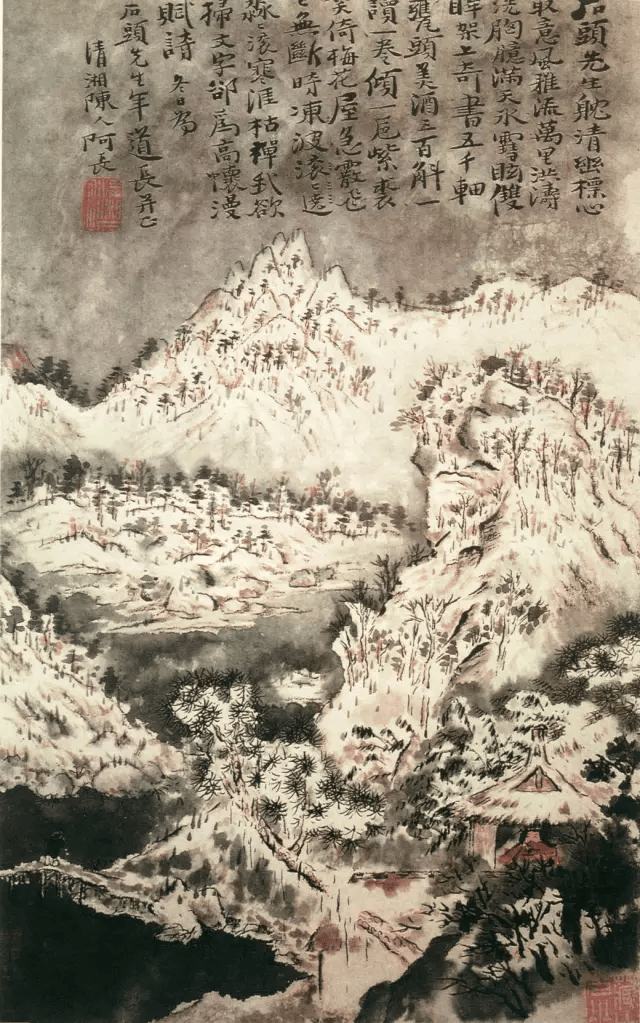 石頭先生耽清幽標心
取意風雅流萬里洪濤
洗胸臆滿天冰雪眩雙
眸架上奇書五千軸
甕頭美酒三百斛一
讀一卷傾一卮紫裘
笑倚梅花屋急霰飛
々無斷時凍波滾々
寒涯枯禪我欲
掃文字卻為高懷漫
賦詩 冬日為
石頭先生年道長并正
清湘陳人阿長